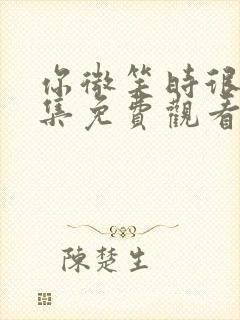 你微笑時很
集免費觀看
陳楚生